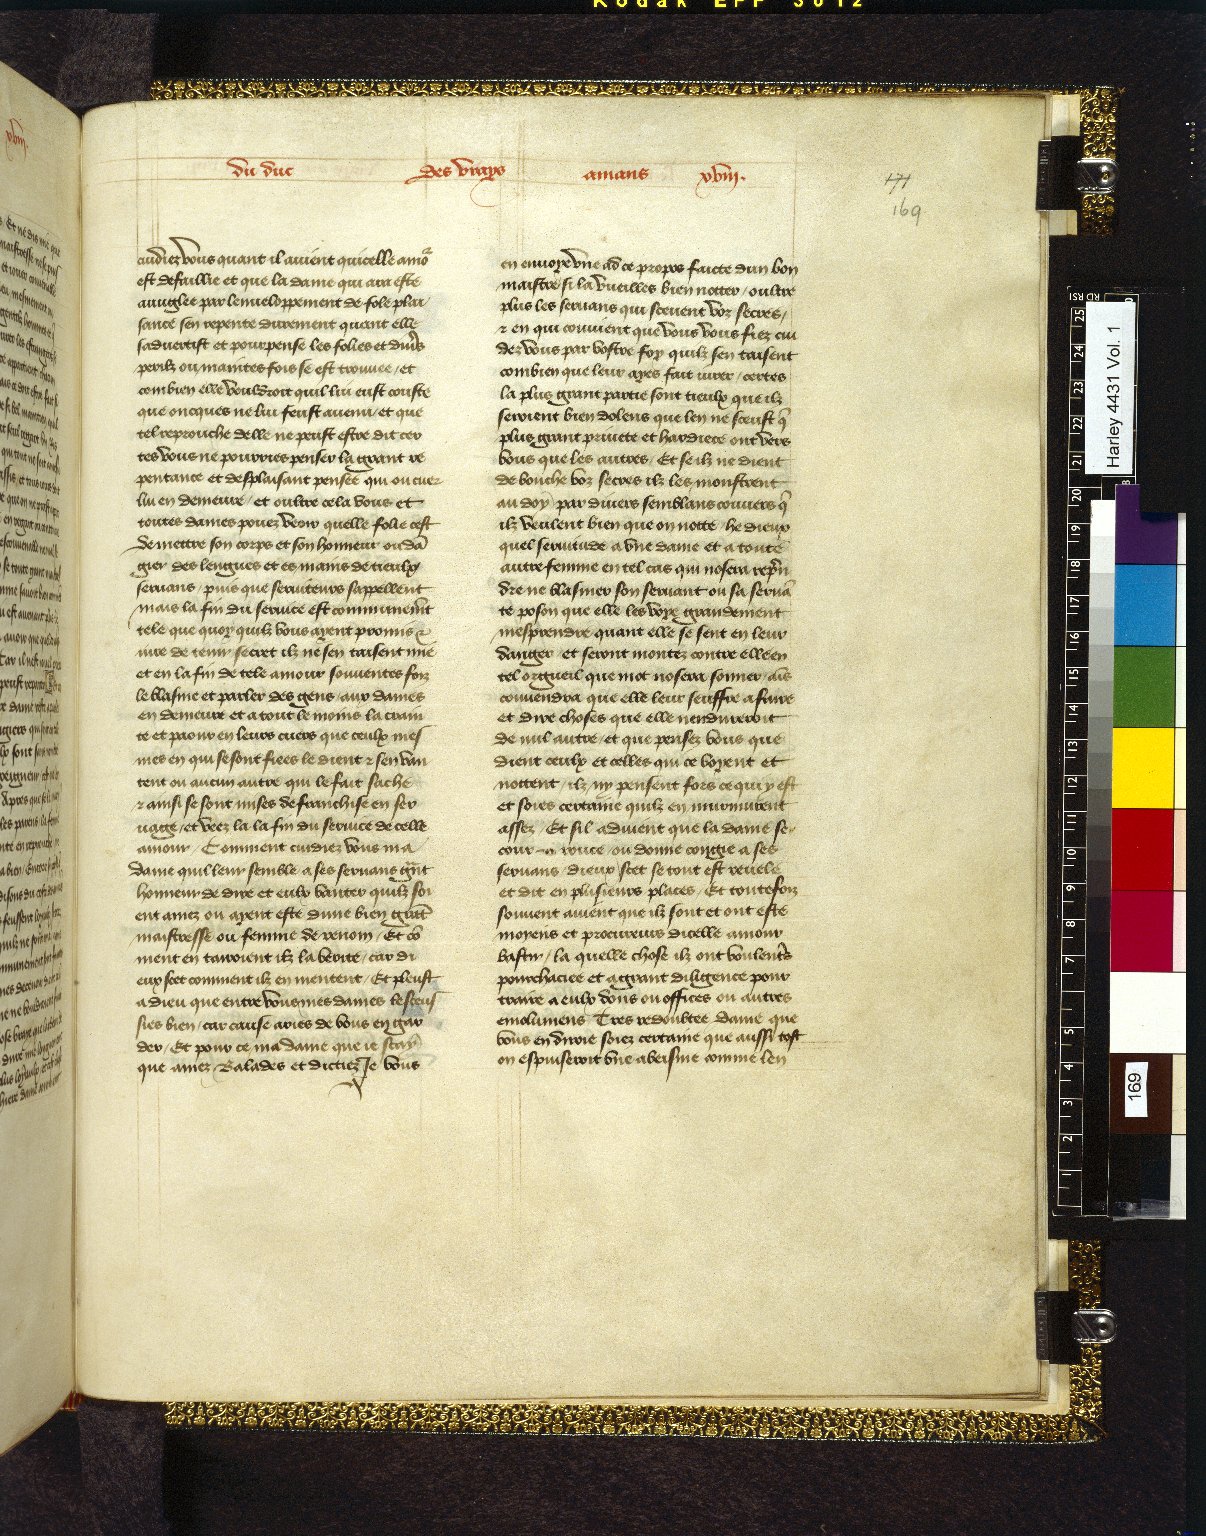 du duc des vrays amans xviii.
171
169
cuidiez vous quant il avient quicelle amo
est defaillie et que la dame qui ara este
avuglee par lenveloppement de fole plai
sance sen repente durement quant elle
saduertist et pourpense les folies et diuers
perilz ou maintes fois se est trouuee / et
combien elle vouldroit quil lui eust couste
que oncques ne lui feust auenu / et que
tel reprouche delle ne peust estre dit cer
tes vous ne pourries penser la grant re
pentance et desplaisant pensee qui ou cuer
lui en demeure / et oultre cela vous et
toutes dames pouez veoir quelle folie cest
de mettre son corps et son honneur ou dā
gier des lengues et es mains de tieulx
seruans / puis que seruiteurs sappellent
mais la fin du seruice est communemēt
tele que quoy quilz vous ayent promis &
iure de tenir secret ilz ne sen taisent mie
et en la fin de tele amour souuentes foiz
le blasme et parler des gens / aux dames
en demeure et a tout le moins la crain
te et paour en leurs cuers que ceulx mes
mes en qui se sont fiees le dient & sen van
tent ou aucun autre qui le fait sache
& ainsi se sont mises de franchise en ser
uage / et veez la la fin du seruice de celle
amour / Comment cuidiez vous ma
dame quil leur semble a ses seruans grāt
honneur de dire et eulx vanter quilz soi
ent amez ou ayent este dune bien grāt
maistresse ou femme de renom / Et cō
ment en tairoient ilz la verite / car di
eux scet comment ilz en mentent / Et pleust
a dieu que entre vous mes dames le sceus
sies bien / car cause aries de vous en gar
der / Et pour ce ma dame que ie scay
que amez Balades et dictiez Je vous
en enuoye vne ad ce propos faicte dun bon
maistre si la vueilles bien notter / oultre
plus les seruans qui sceuent voz secres /
& en qui couuient que vous vous fiez cui
dez vous par vostre foy quilz sen taisent
combien que leur ayes fait iurer / certes
la plus grant partie sont tieulx que ilz
seroient bien dolens que len ne sceust q̄
plus grant priuete et hardiece ont vers
vous que les autres / Et se ilz ne dient
de bouche voz secres ilz les monstrent
au doy / par diuers semblans couuers q̄
ilz veulent bien que on notte / he dieux
quel seruitude a vne dame et a toute
autre femme en tel cas qui nosera reprē
dre ne blasmer son seruant ou sa seruā
te poson que elle les voye grandement
mesprendre quant elle se sent en leur
danger / et seront montez contre elle en
tel orgueil que mot nosera sonner / ais
conuendra que elle leur seuffre a faire
et dire choses que elle nendureroit
de nul autre / et que pensez vous que
dient ceulx et celles qui ce voyent et
nottent / ilz ny pensent fors ce qui y est
et soies certaine quilz en murmurent
assez / Et sil aduient que la dame se
cour rouce / ou donne congie a ses
seruans / dieux scet se tout est reuele
et dit en plusieurs places / Et toutefoiz
souuent auient que ilz sont et ont este
moyens et procureurs dicelle amour
bastir / la quelle chose ilz ont voulentrs
pourchaciee et a grant diligence pour
traire a eulx dons ou offices ou autres
emolumens Tres redoubtee dame que
vous en diroie soiez certaine que aussi tost
on espuiseroit vne abeisme comme len
Kodak EPP 5012
Harley 4431 Vol. 1
169
25
24
23
22
21
20
19
18
17
16
15
14
13
12
11
10
9
8
7
6
5
4
3
2
1